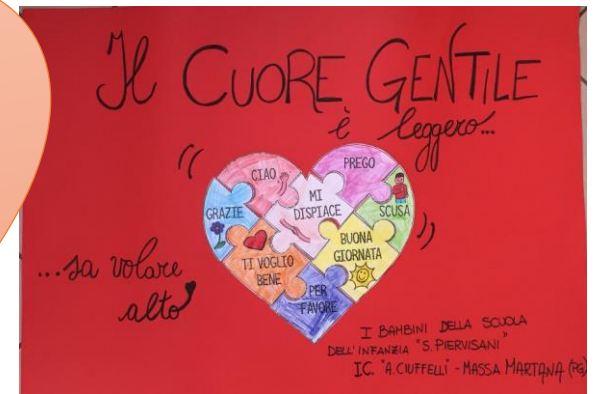 Il CUORE GENTILE
è leggero...
CIAO
PREGO
GRAZIE
MI
DISPIACE
SCUSA
TI VOGLIO
BENE
BUONA
GIORNATA
PER
FAVORE
...sa volare
alto
I BAMBINI DELLA SCUOLA
DELL'INFANZIA "S. PIERVISANI"
I.C. "A. CIUFFELLI" - MASSA MARTANA (PG)